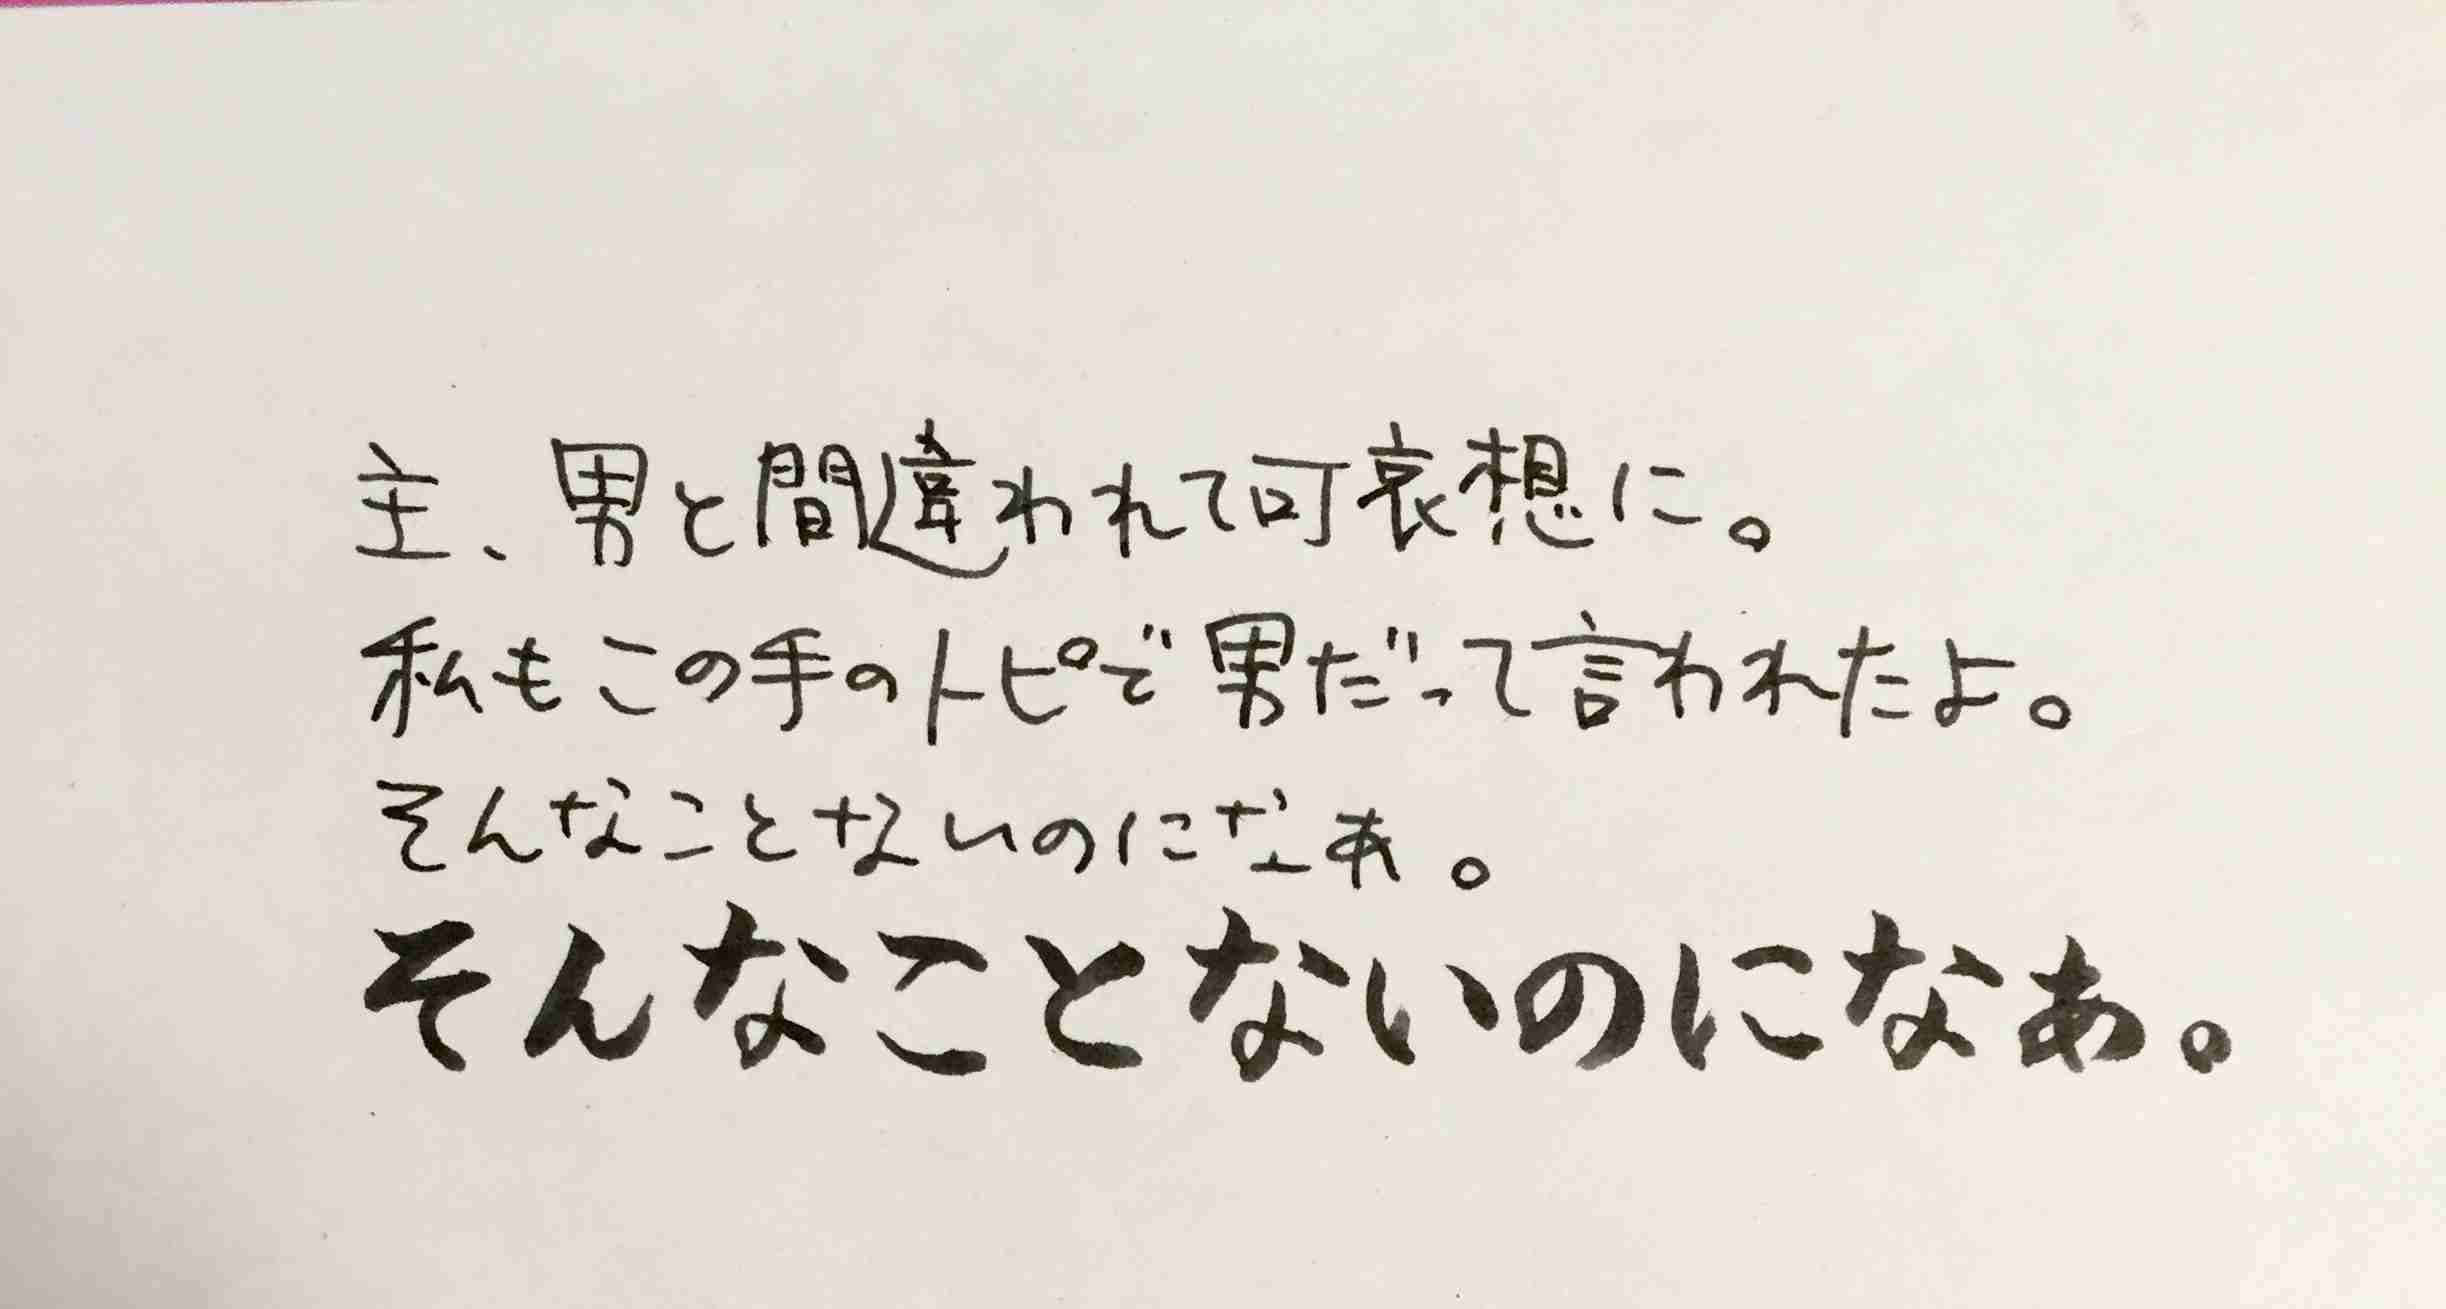 主、男と間違われて可哀想に。
私もこの手のトピで男だって言われたよ。
そんなことないのになぁ。
そんなことないのになぁ。